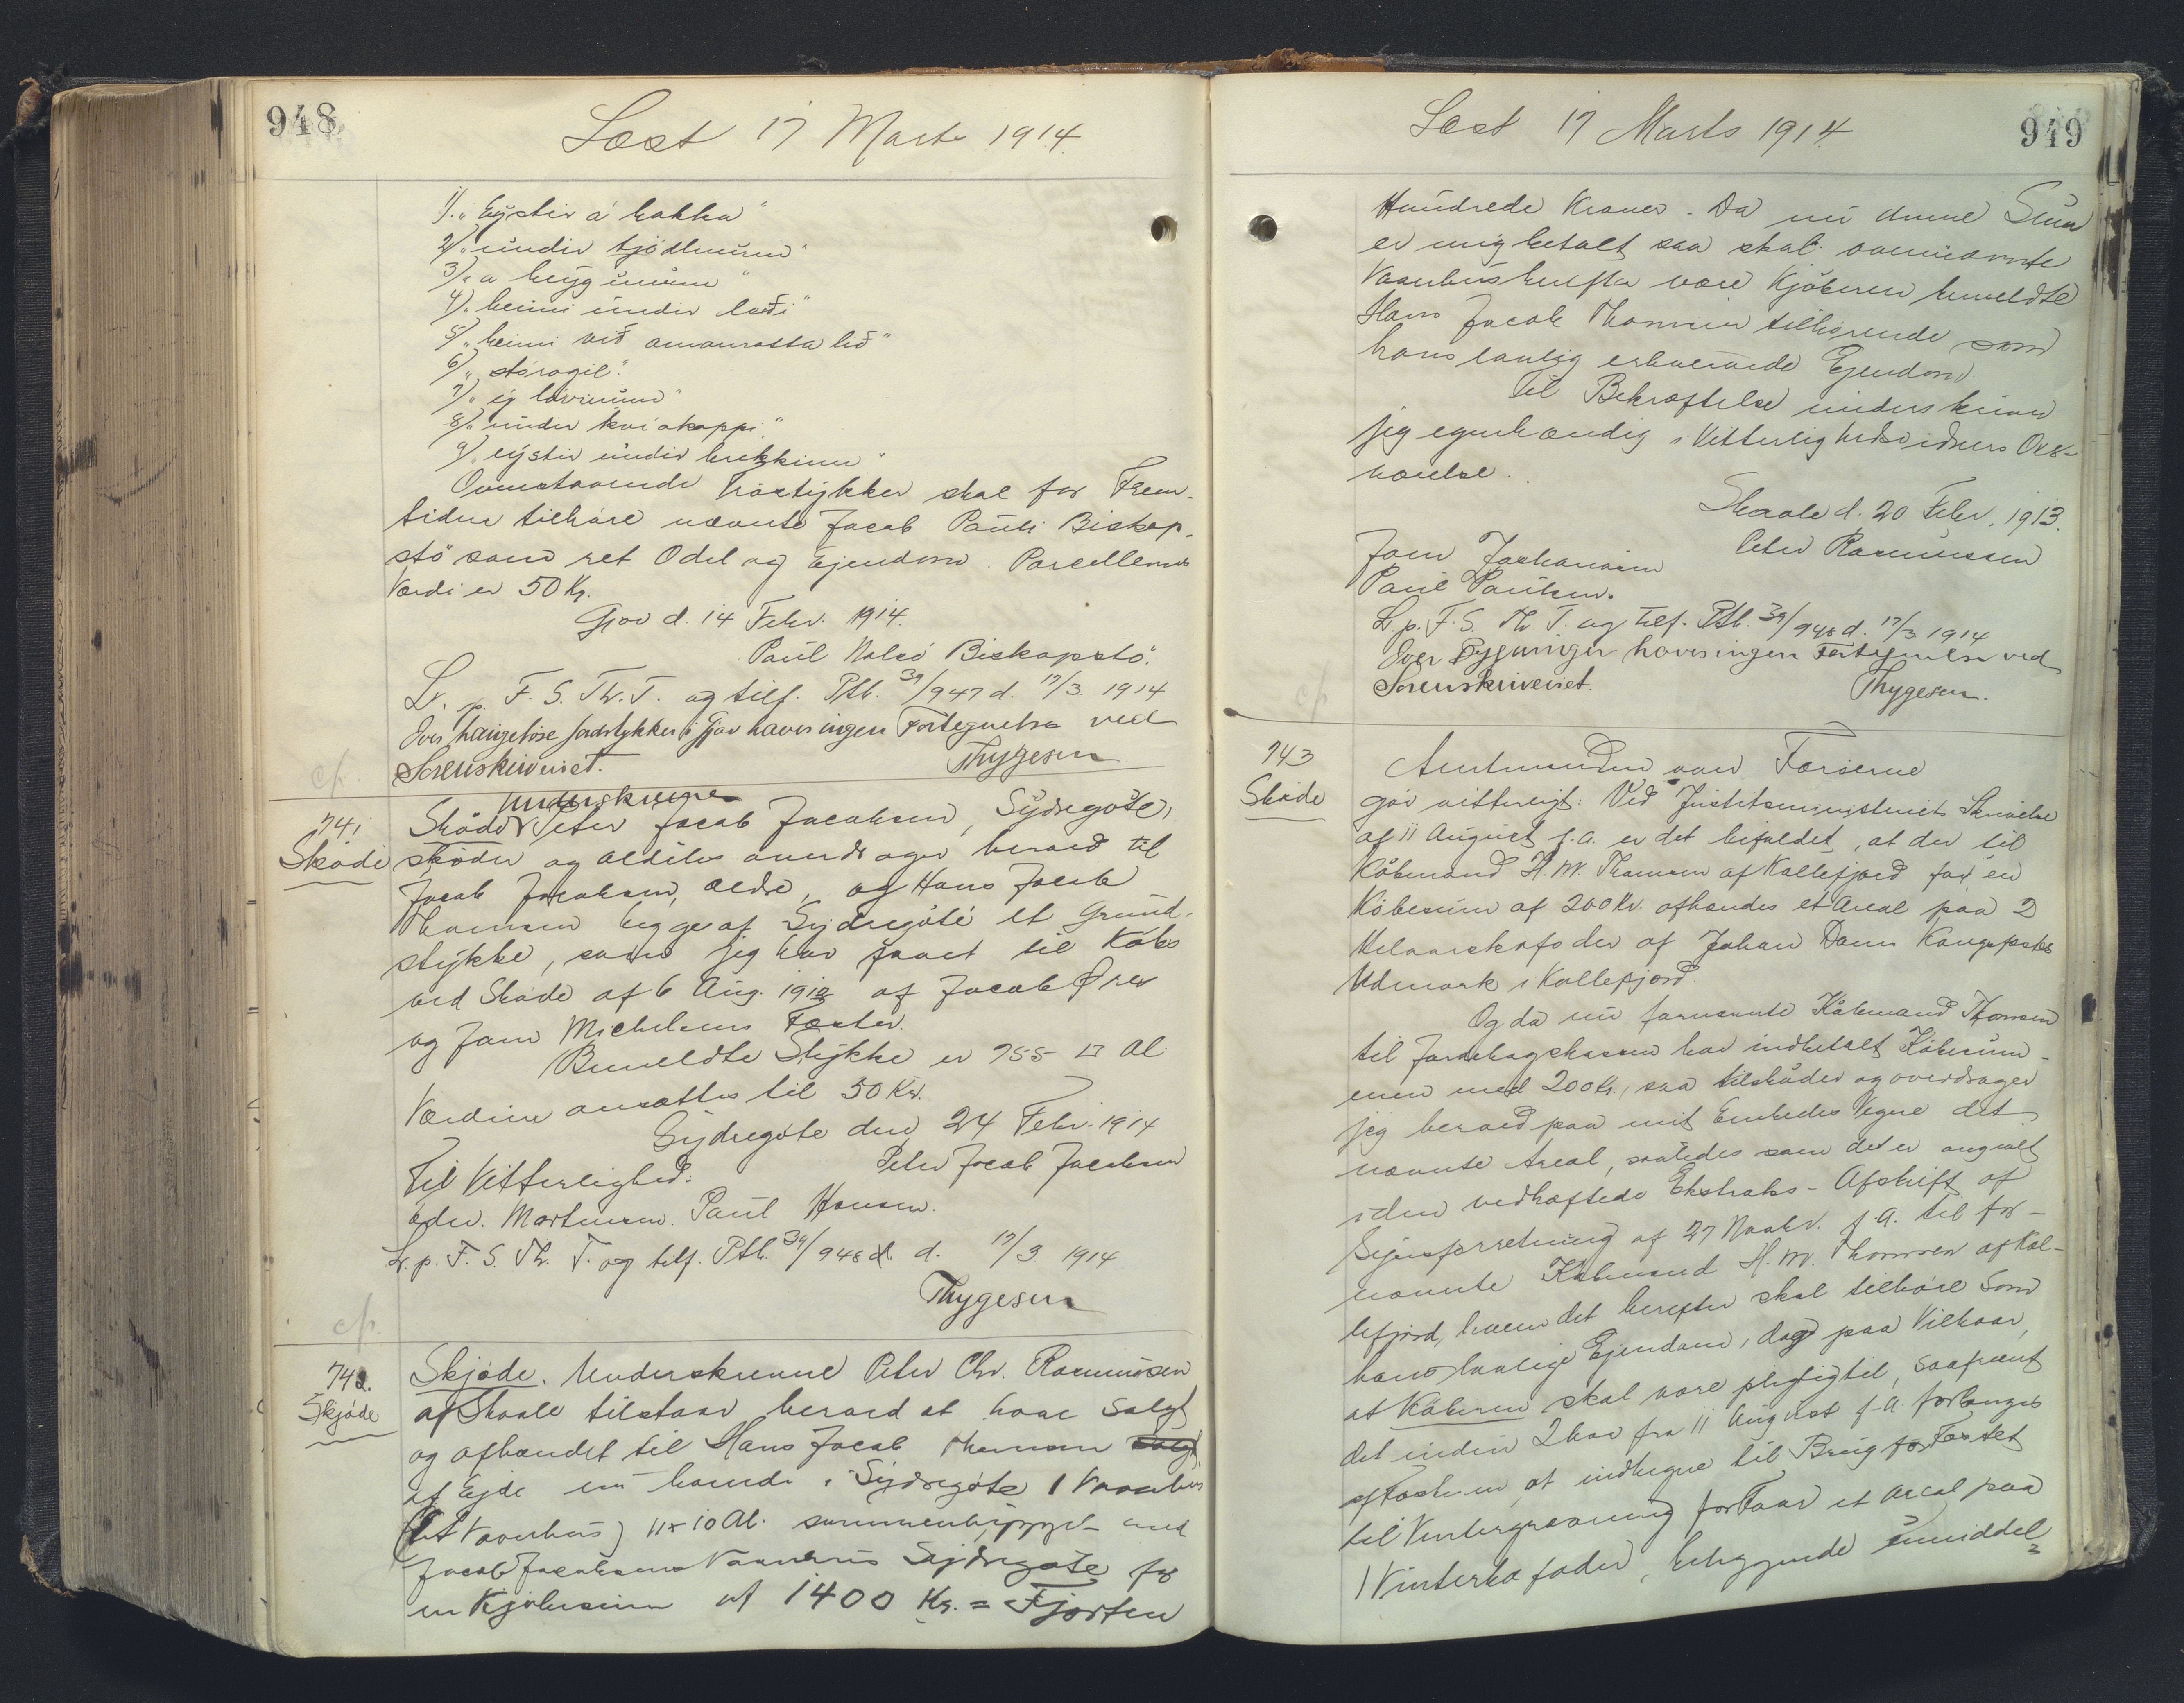 948
Læst 17 Marts 1914
1/. "Eystir á bakka"
2/. "undir tjødlunum"
3/. "a heygunum"
4/. "heimi undir løði"
5/. "heimi við omanratta lið"
6/. "stóragil".
7/. "ej lovinum"
8/. "undir kviokoppi."
9/. "eystir undir brekkinu"
Ovenstaaende Hóstykker skal for Frem-
tiden tilhøre nævnte Jacob Pauli Biskop-
stø som ret Odel og Ejendom. Parcellernes
Værdi er 50 Kr.
Gjov d. 14 Febr. 1914.
Paul Nolsö Biskopstö.
L. p. F. S. Th. T. og tilf. Ptb. 39/947 d. 17/3 1914
Over haugeløse Jordstykker i Gjov haves ingen Fortegnelse ved
Sorenskriveriet.
Thygesen
cf.
741
Skøde
Underskrevne
Skøde Peter Jacob Jacobsen, Sydregøte,
skøder og aldeles overdrager herved til
Jacob Jacobsen, ældre, og Hans Jacob
Thomsen begge af Sydregøte et Grund-
stykke, som jeg har faaet til Købs
ved Skøde af 6 Aug. 1912 af Jacob Øre
og Joen Michelsens Fæster.
Bemeldte Stykke er 755 □ Al
Værdien ansættes til 50 Kr.
Sydregøte den 24 Febr. 1914
Til Vitterlighed:
Peter Jacob Jacobsen
Mortensen. Paul Hansen.
L. p. F. S. Th. T. og tilf. Ptb. 39/948 d. 17/3 1914
Thygesen
cf.
742.
Skjøde
Skjøde. Underskrevne Peter Chr. Rasmussen
af Skaale tilstaar herved at have Salgt
og afhændet til Hans Jacob Thomsen
af Ejde nu boende i Sydregøte 1 Vaanhus
(Et Vaanhus) 11 x 10 Al. sammenbygget med
Jacob Jacobsens Vaanhus Sydregøte for
en Kjøbesum af 1400 Kr. = Fjorten
949
Læst 17 Marts 1914
Hundrede Kroner. Da nu denne Sum
er mig betalt saa skal ovennævnte
Vaanhus herefter være Kjøberen bemeldte
Hans Jacob Thomsen tilhørende som
hans lovlig erhvervede Ejendom
Til Bekræftelse underskriver
jeg egenhændig i Vitterlighedsvidners Over-
værelse.
Skaale d. 20 Febr. 1913.
Peter Rasmussen
Joen Zachariasen
Paul Paulsen.
L. p. F. S. Th. T. og tilf. Ptb. 39/948 d. 17/3 1914
Over Bygninger haves ingen Fortegnelse ved
Sorenskriveriet.
Thygesen.
cf.
743
Skøde
Amtmanden over Færøerne
gør vitterligt: Ved Justitsministeriets Skrivelse
af 11 August f. A. er det bifaldet, at der til
Købmand H. M. Thomsen af Kollefjord for en
Købesum af 200 Kr. afhændes et Areal paa 2
Udmarkafoder af Johan Dam Kongsfæstes
Udmark i Kollefjord.
Og da nu fornævnte Købmand Thomsen
til Jordebogskassen har indbetalt Købesum-
men med 200 Kr., saa tilskøder og overdrager
jeg herved paa mit Embedes Vegne det
nævnte Areal, saaledes som det er angivet
i den vedhæftede Ekstrakt-Afskrift af
Synsforretning af 27 Novbr. f. A. til for-
nævnte Købmand H. M. Thomsen af Kol-
lefjord, hvem det herefter skal tilhøre som
hans lovlige Ejendom, dog paa Vilkaar,
at Køberen skal være pligtig til, saafremt
det inden 2 Aar fra 11 August f. A. forlanges
af Fæsteren, at indhegne til Brug for Fæstet
til Vintergræsning fortaar et Areal paa
1 Vinterkøfoder, beliggende umiddel-